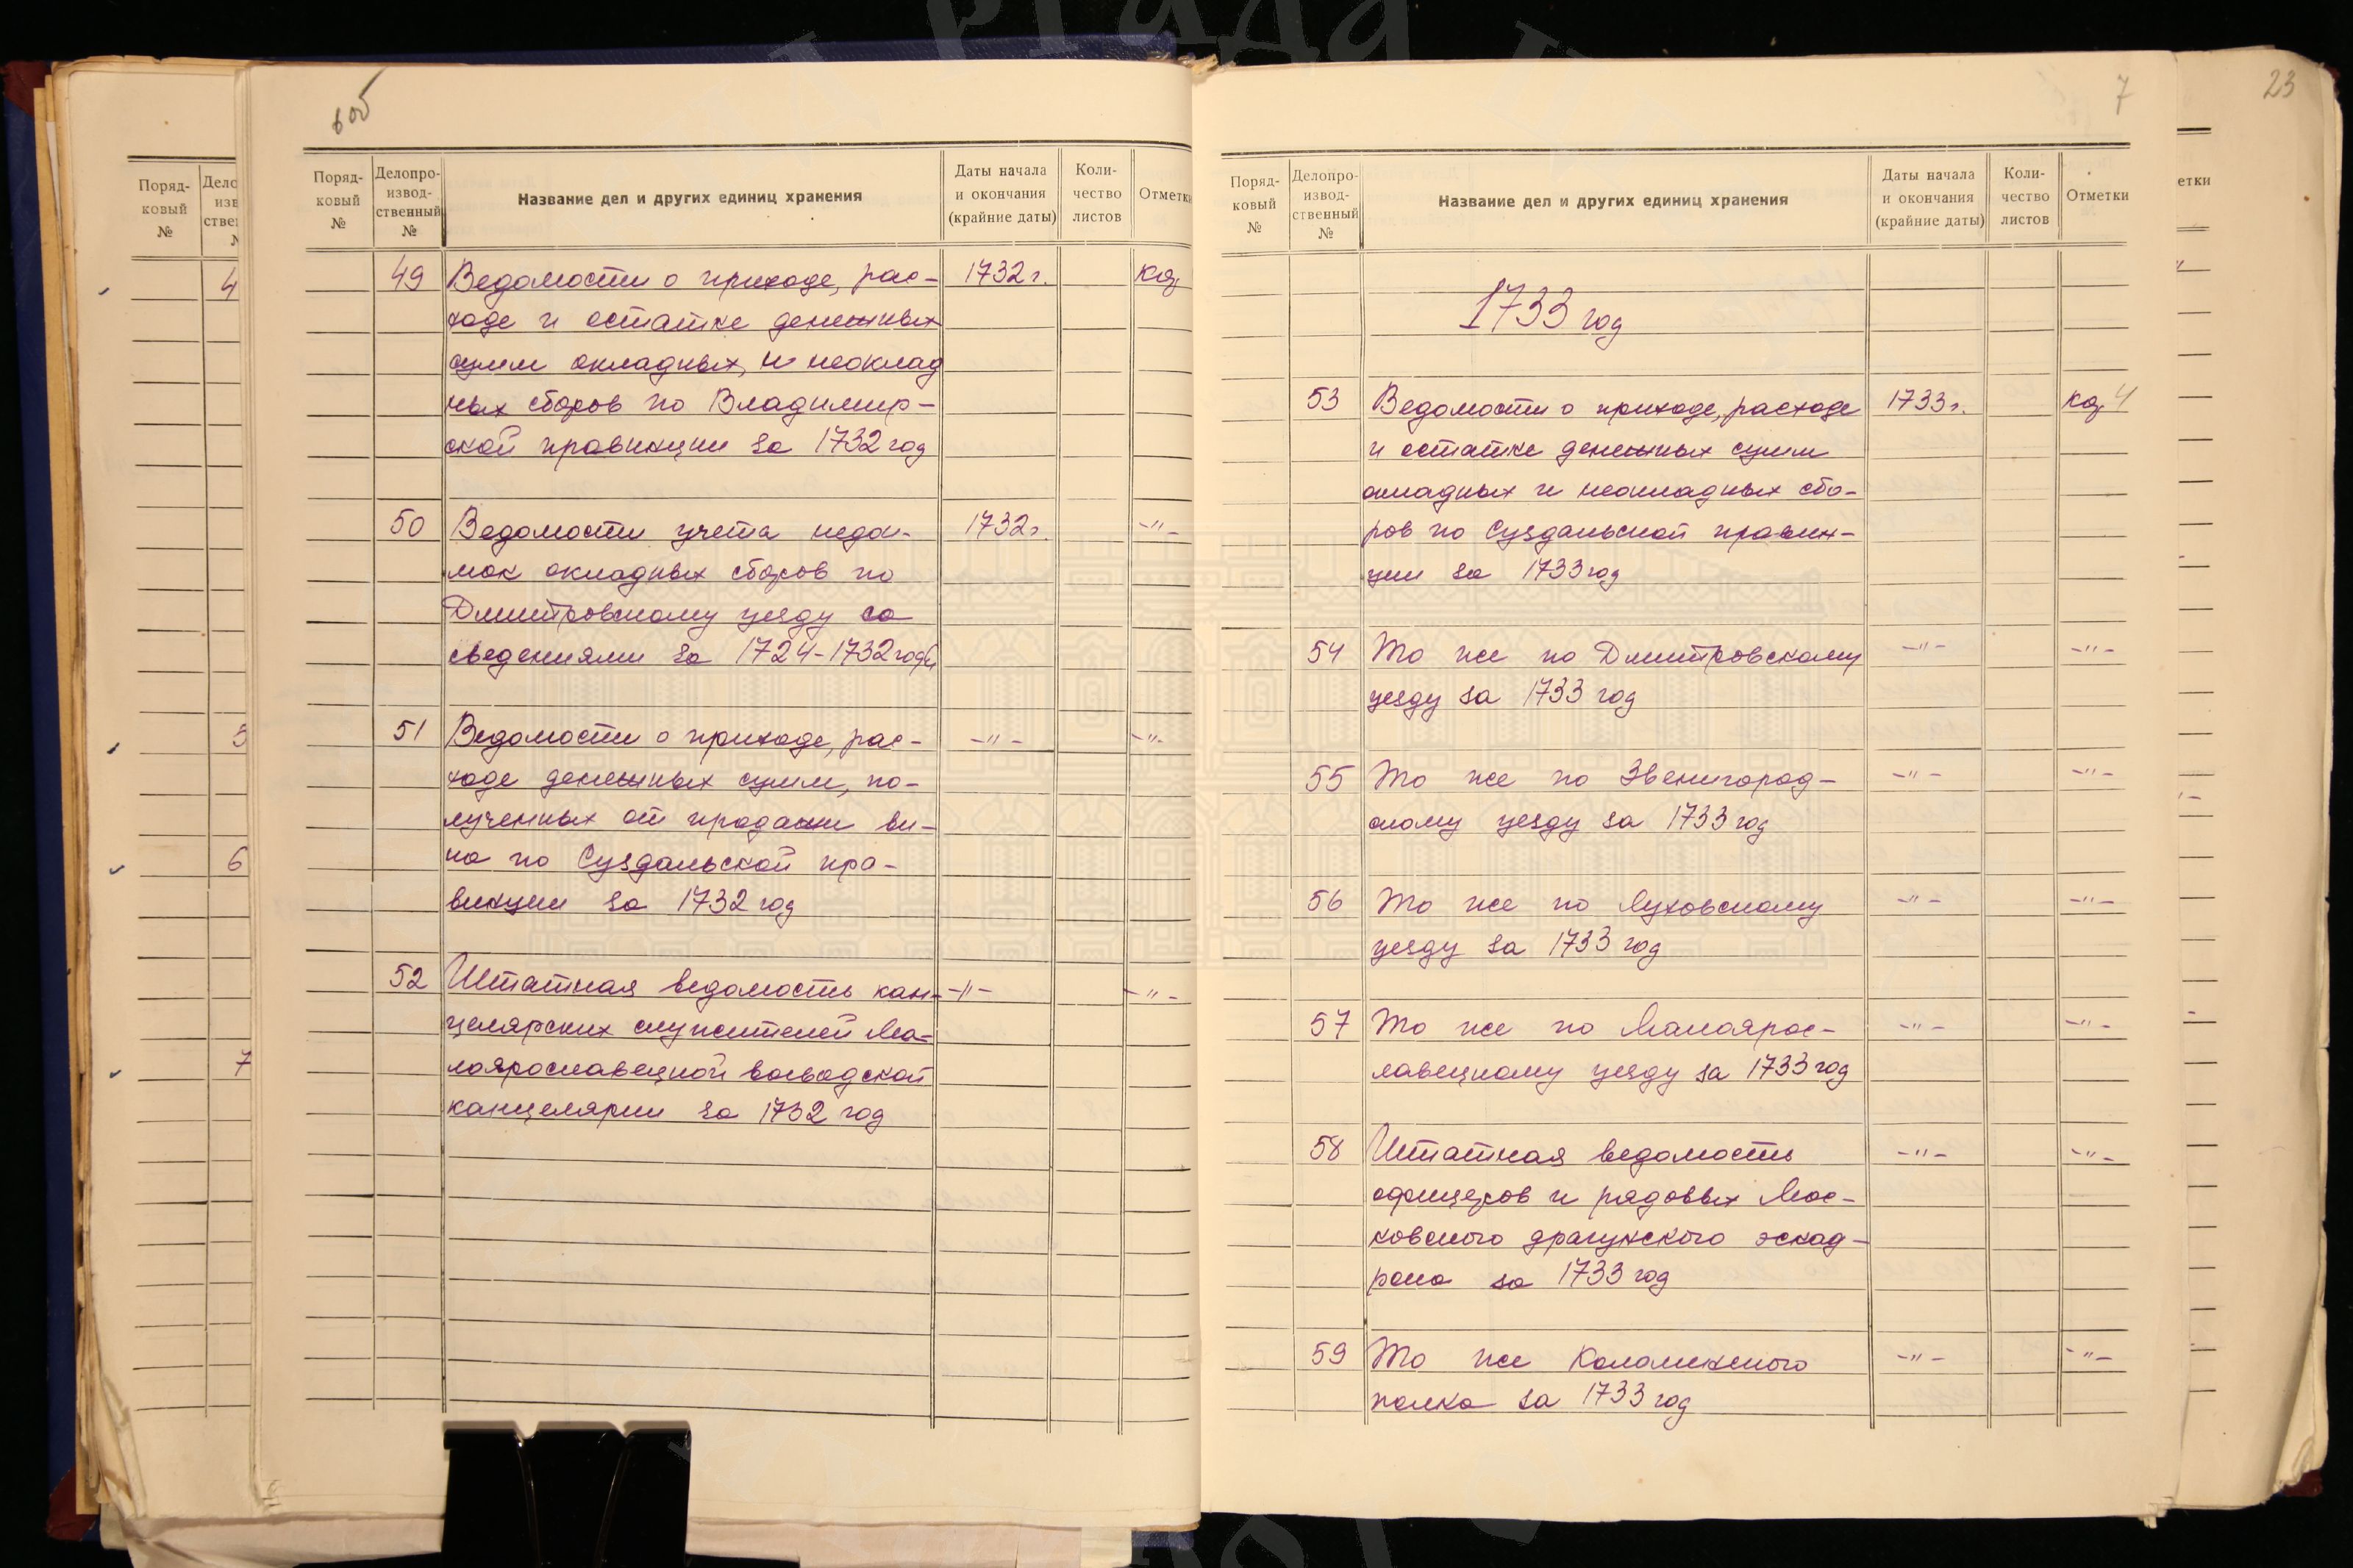 6об
Поряд-
ковый
№
Делопро-
извод-
ственный
№
Название дел и других единиц хранения
Даты начала
и окончания
(крайние даты)
Коли-
чество
листов
Отметки
49 Ведомости о приходе, рас- 1732 г.
ходе и остатке денежных
сумм окладных, и неоклад
ных сборов по Владимир-
ской правинции за 1732 год
50 Ведомости учета недои- 1732 г. -"-
мок окладных сборов по
Дмитровскому уезду со
сведениями за 1724-1732 годы
51 Ведомости о приходе, рас- -"- -"-
ходе денежных сумм, по-
лученных от продажи ви-
на по Суздальской пра-
винции за 1732 год
52 Штатная ведомость кан- -"- -"-
целярских служителей Ма-
лоярославецкой воеводской
канцелярии за 1732 год
7
Поряд-
ковый
№
Делопро-
извод-
ственный
№
Название дел и других единиц хранения
Даты начала
и окончания
(крайние даты)
Коли-
чество
листов
Отметки
1733 год
53 Ведомости о приходе, расходе 1733 г.
и остатке денежных сумм
окладных и неокладных сбо-
ров по Суздальской правин-
ции за 1733 год
54 То же по Дмитровскому -"- -"-
уезду за 1733 год
55 То же по Звенигород- -"- -"-
скому уезду за 1733 год
56 То же по Луховскому -"- -"-
уезду за 1733 год
57 То же по Малоярос- -"- -"-
лавецкому уезду за 1733 год
58 Штатная ведомость -"- -"-
офицеров и рядовых Мос-
ковского драгунского эскад-
рона за 1733 год
59 То же Коломенского -"- -"-
полка за 1733 год
23